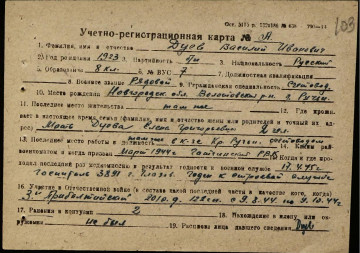 103
Учетно-регистрационная карта № Л.
1. Фамилия, имя и отчество Дуев Василий Иванович
2. Год рождения 1923 3. Партийность б/п 4. Национальность Русский
5. Образование 8 кл. 6. № ВУС 7 7. Должностная квалификация
8. Воинское звание Рядовой 9. Гражданская специальность Счетовод
10. Место рождения Новгородск. обл.
11. Последнее место жительства там же 12. Где прожи-
вает в настоящее время семья (фамилия, имя и отчество жены или родителей и точный их ад-
рес) Мать Дуева Елена Григорьевна
13. Последнее место работы и должность счетоводом 14. Каким рай-
военкоматом и когда призван Март 1944 г. 15. Когда и где про-
ходил последний раз медкомиссию и результат годности к военной службе 17.4.45 г.
госпиталь 3891 г. Глазов. Годен к строевой службе
16. Участие в Отечественной войне (в составе какой последней части и качестве кого, когда)
3й Прибалтийский с 9.8.44 по 9.10.44
17. Ранения и контузии 2 18. Нахождение в плену или ок-
ружении не был 19. Расписка лица давшего сведения Дуев